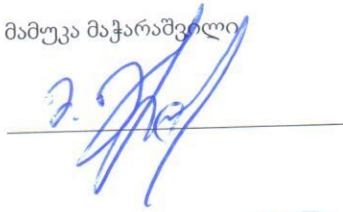 მამუკა მაჭარაშვილი